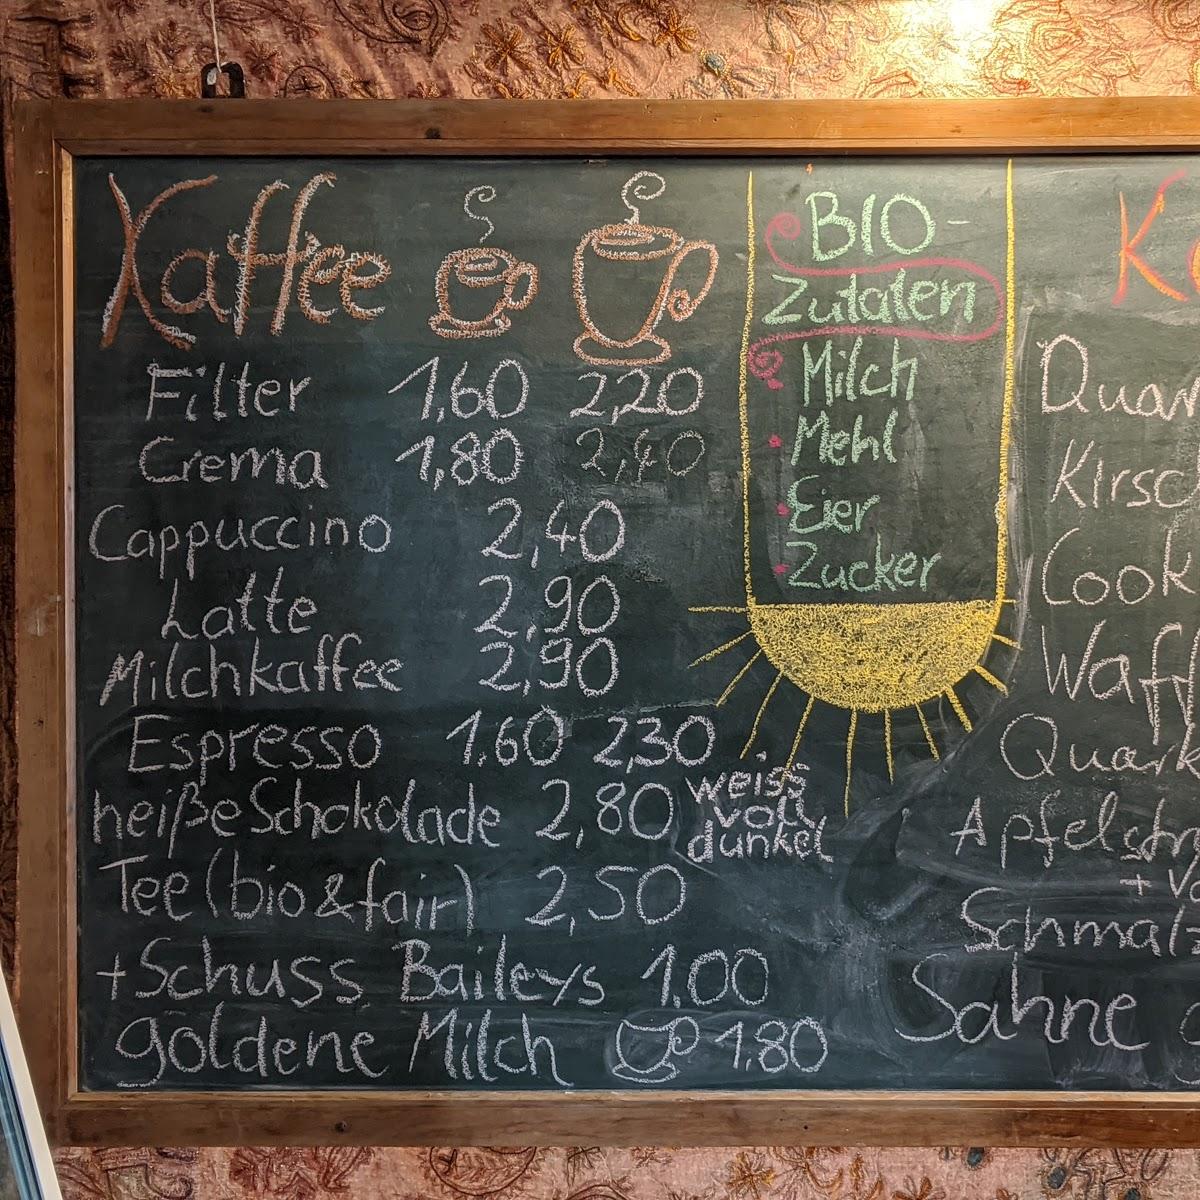 Kaffee
Filter 1,60 2,20
Crema 1,80 2,40
Cappuccino 2,40
Latte 2,90
Milchkaffee 2,90
Espresso 1.60 2,30
heiße Schokolade 2,80 weiss
voll
dunkel
Tee (bio & fair) 2,50
+ Schuss Baileys 1.00
goldene Milch 1.80
BIO-
Zutaten
Milch
Mehl
Eier
Zucker
K
Quar
Kirsc
Cook
Waff
Quark
Apfelstr
+ V
Schmalz
Sahne